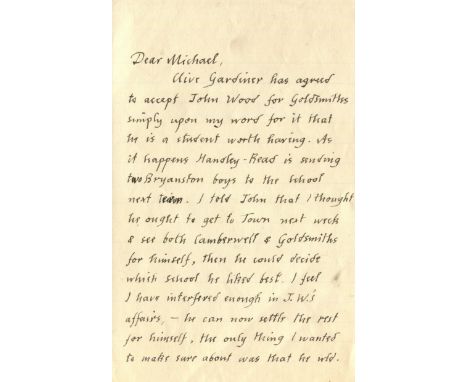 Dear Michael,
Clive Gardiner has agreed
to accept John Wood for Goldsmiths
simply upon my word for it that
he is a student worth having. As
it happens Handley-Read is sending
two Bryanston boys to the school
next term. I told John that I thought
he ought to get to Town next week
& see both Camberwell & Goldsmiths
for himself, then he could decide
which school he liked best. I feel
I have interfered enough in J.W.'s
affairs, – he can now settle the rest
for himself, the only thing I wanted
to make sure about was that he wld.